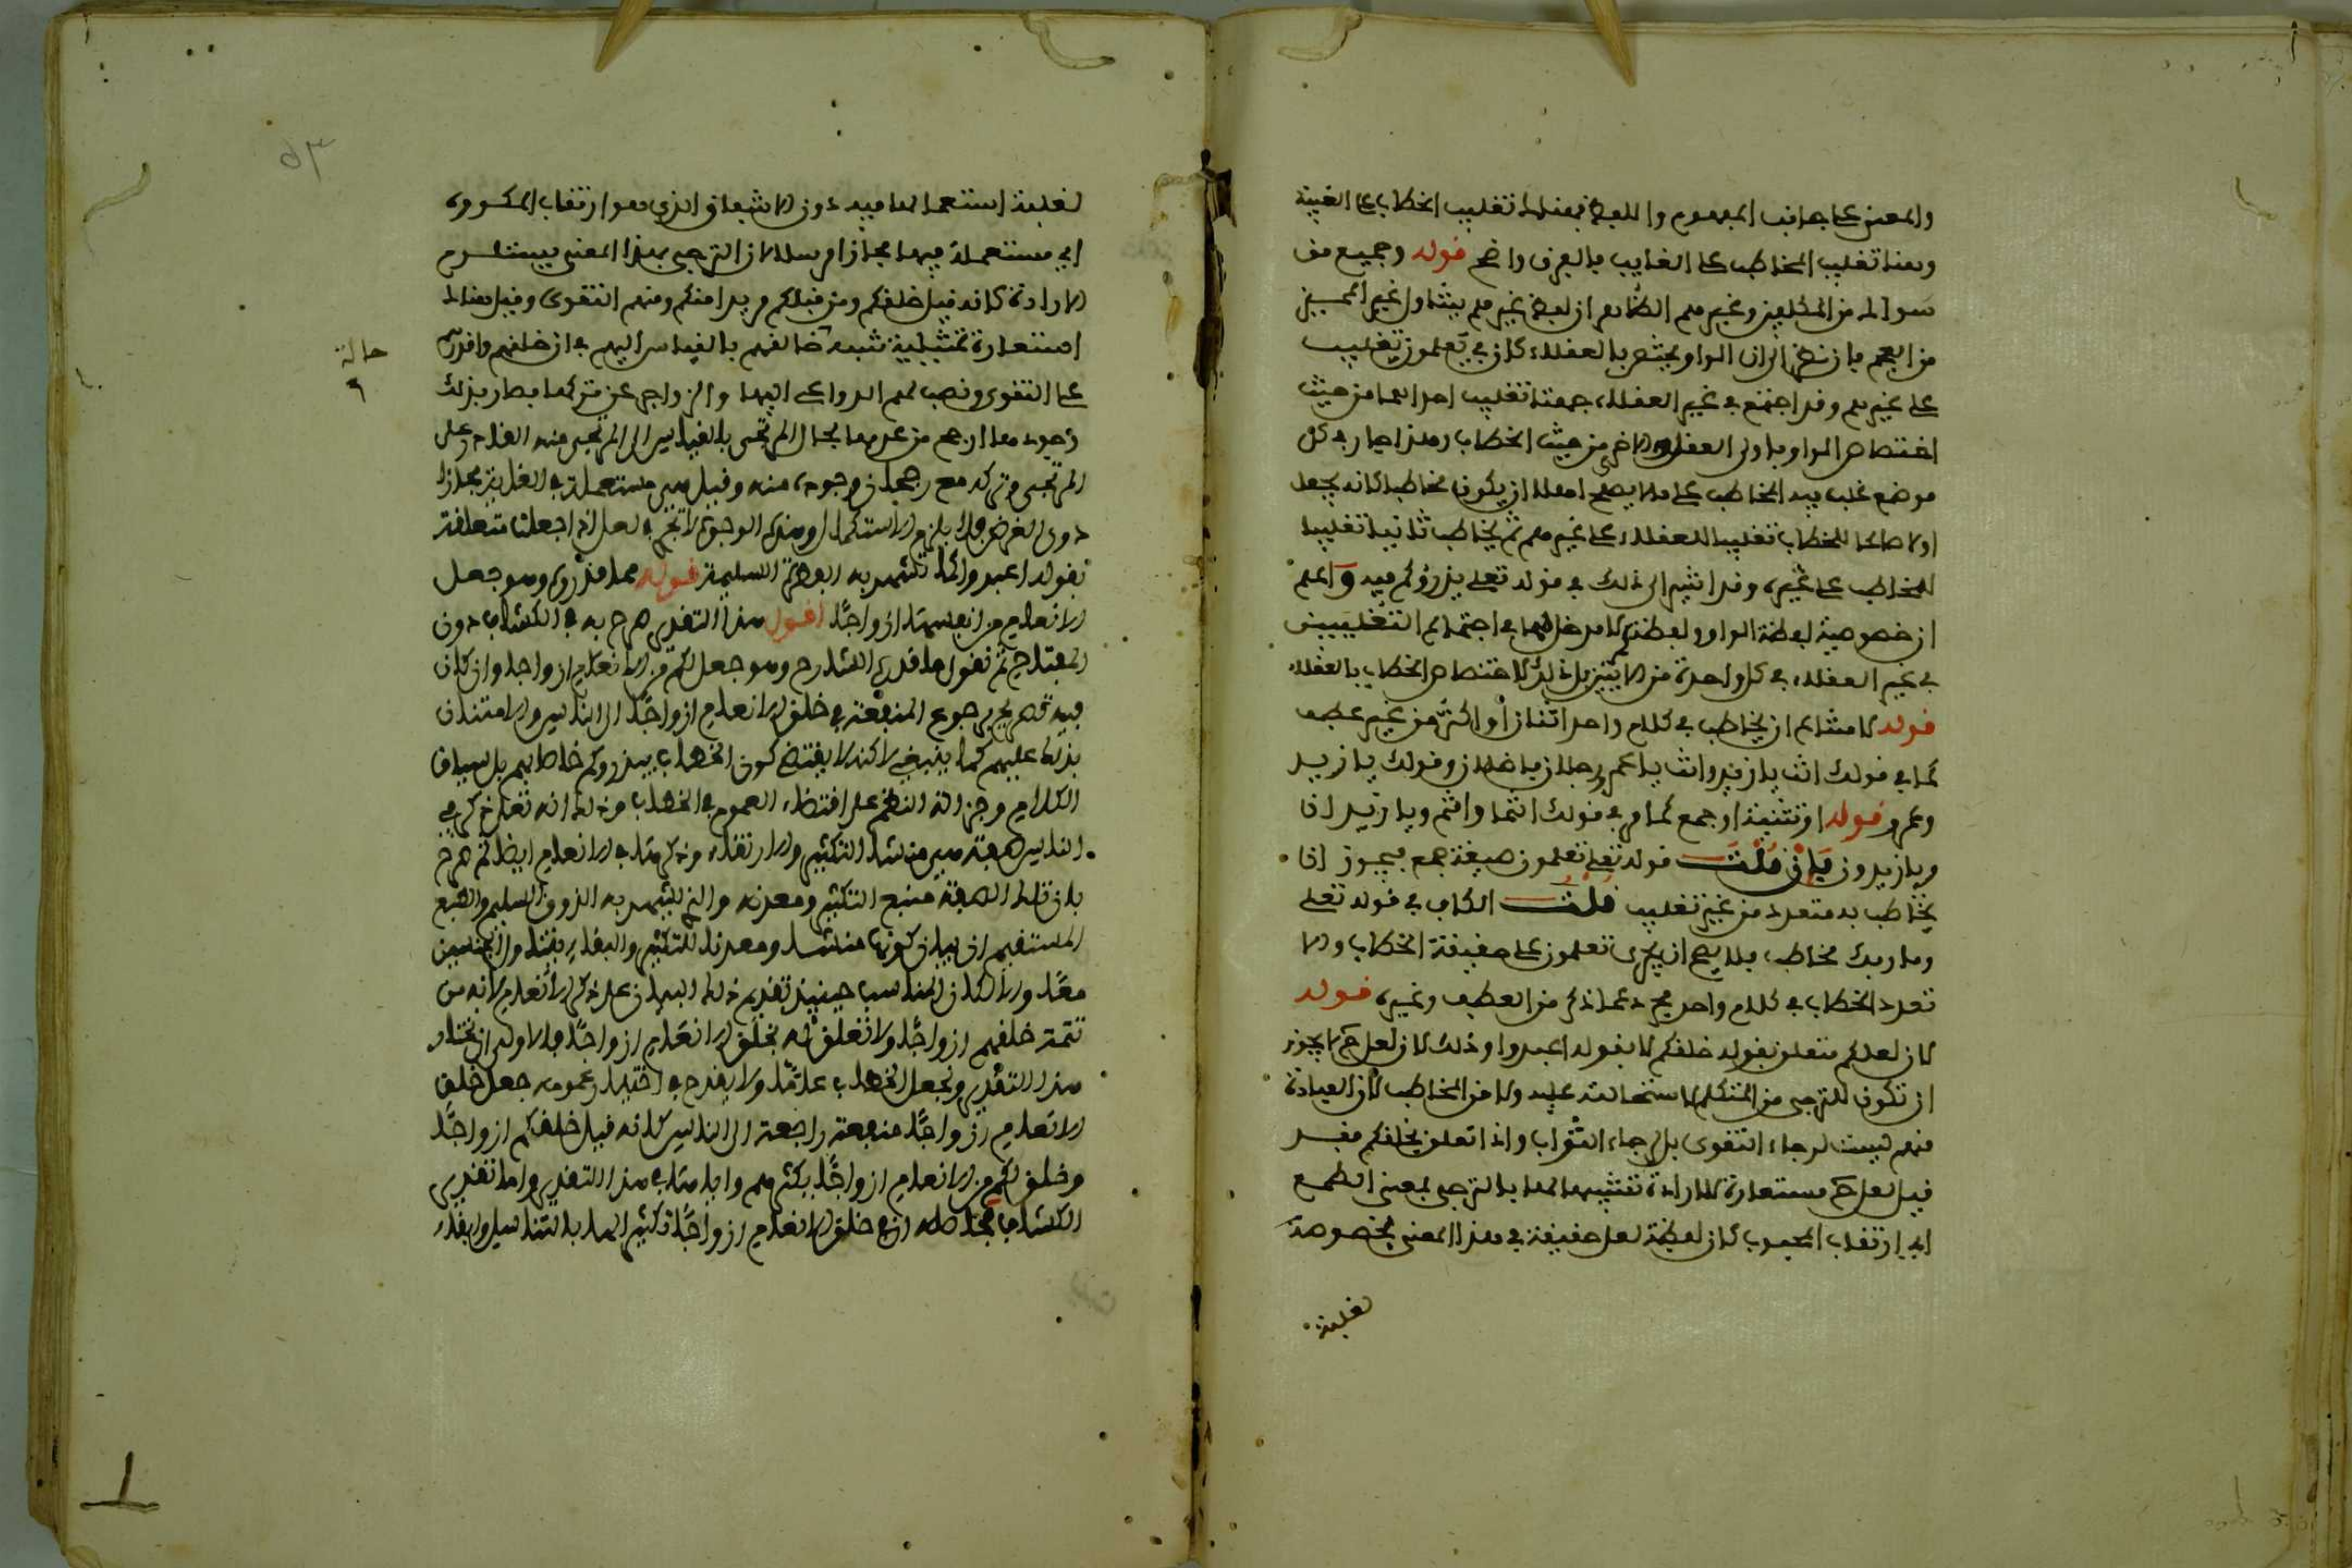 والمعنى على جانب المفهوم واللفظ فهنا تغليب الخطاب على الغيبة
وهنا تغليب المخاطب على الغايب والفرق واضح قوله وجميع من
سواك من المكلفين وغيرهم الظاهر ان لفظ غيرهم يتناول غير المميز
من العجم فان نظر الى ان الواو يختص بالعقلاء كان في تعلمون تغليب
على غيرهم وقد اجتمع في غير العقلاء جهتا تغليب احداهما من حيث
اختصاص الواو باولى العقل والاخرى من حيث الخطاب وهذا جار في كل
موضع غلب فيه المخاطب على ما لا يصلح اصلا ان يكون مخاطبا كانه يجعل
اولا صالحا للخطاب تغليبا للعقلاء على غيرهم ثم يخاطب ثانيا تغليبا
للمخاطب على غيره وقد اشير الى ذلك في قوله تعلى يذرؤكم فيه واعلم
ان خصوصية لفظة الواو ولفظة كم لا مدخل لهما في اجتماع التغليبين
في غير العقلاء في كل واحدة من الايتين بل ذلك لاختصاص الخطاب بالعقلاء
قوله لامتناع ان يخاطب في كلام واحد اثنان أو اكثر من غير عطف
كما في قولك انت يا زيد وانت يا عمرو رجلان فاضلان وقولك يا زيد
وعمرو قوله او تثنية او جمع كما في قولك انتما وانتم ويا زيدان
ويا زيدون فإن قلت قوله تعلى تعلمون صيغة جمع فيجوز ان
يخاطب به متعدد من غير تغليب قلت الكاف في قوله تعلى
وما ربك مخاطب فلا يصح ان يجرى تعلمون على حقيقة الخطاب والا
تعدد الخطاب في كلام واحد مجردا عما ذكر من العطف وغيره قوله
لان لعلكم متعلق بقوله خلقكم لا بقوله اعبدوا وذلك لان لعل لا يجوز
ان تكون للترجى من المتكلم لاستحالته عليه ولا من المخاطب لان العبادة
منهم ليست لرجاء التقوى بل لرجاء الثواب واذا تعلق بخلقكم فقد
قيل لعل مستعارة للارادة تشبيها لها بالترجى بمعنى الطمع
اي ارتقاب المحبوب لان لفظة لعل حقيقة في هذا المعنى بخصوصه
لغلبة
لغلبة استعمالها فيه دون الاشفاق الذي هو ارتقاب المكروه
اي مستعملة فيها مجازا مرسلا لان الترجى بهذا المعنى يستلزم
الارادة كانه قيل خلقكم ومن قبلكم مريدا منكم ومنهم التقوى وقيل هناك
استعارة تمثيلية شبه خالقهم بالقياس اليهم في ان خلقهم واقدرهم
على التقوى ونصب لهم الدواعى اليها والزواجر عن تركها فصار بذلك
وجودها ارجح من عدمها بحال المرتجى بالقياس الى المرتجى منه القادر على
المرتجى وتركه مع رجحان وجوده منه وقيل هي مستعملة في الغاية مجازا
دون الغرض
بقوله اعبدوا كما تشهد به الفطرة السليمة قوله مما قدروه وهو جعل
الانعام من انفسها ازواجًا اقول هذا التقدير صرح به في الكشاف دون
المفتاح ثم نقول ما قدره الشارح وهو جعل لكم من الانعام ازواجا وان كان
فيه تصريح برجوع المنفعة في خلق الانعام ازواجًا الى الناس والامتنان
بذلك عليهم كما ينبغي لاكنه لا يقتضى كون الخطاب بيذروكم خاصا بهم بل سياق
الكلام وجزالة النظم على اقتضاء العموم في الخطاب وذلك انه تعلى ذكر في
الناس صفة هي منشا التكثير والارتقاء وذكر مثله في الانعام ايضا ثم صرح
بان تلك الصفة منبع التكثير ومعدنه والذي يشهد به الذوق السليم والطبع
المستقيم ان بيان كونها منشا ومعدنا للتكثير والبقاء يتناول الجنسين
معًا والا لكان المناسب حينيذ تقديم ذلك البيان على ذكر الأنعام لانه من
تتمة خلقهم ازواجًا ولا تعلق له بخلق الانعام ازواجًا والاولى ان يختار
هذا التقدير ويجعل الخطاب عامًا ولا يقدح في اختيار عمومه جعل خلق
الانعام ازواجًا منفعة راجعة الى الناس كانه قيل خلقكم ازواجًا
وخلق لكم من الانعام ازواجًا يكثرهم واياها في هذا التقدير واما تقدير
الكشاف
حالة
٦
٥٣